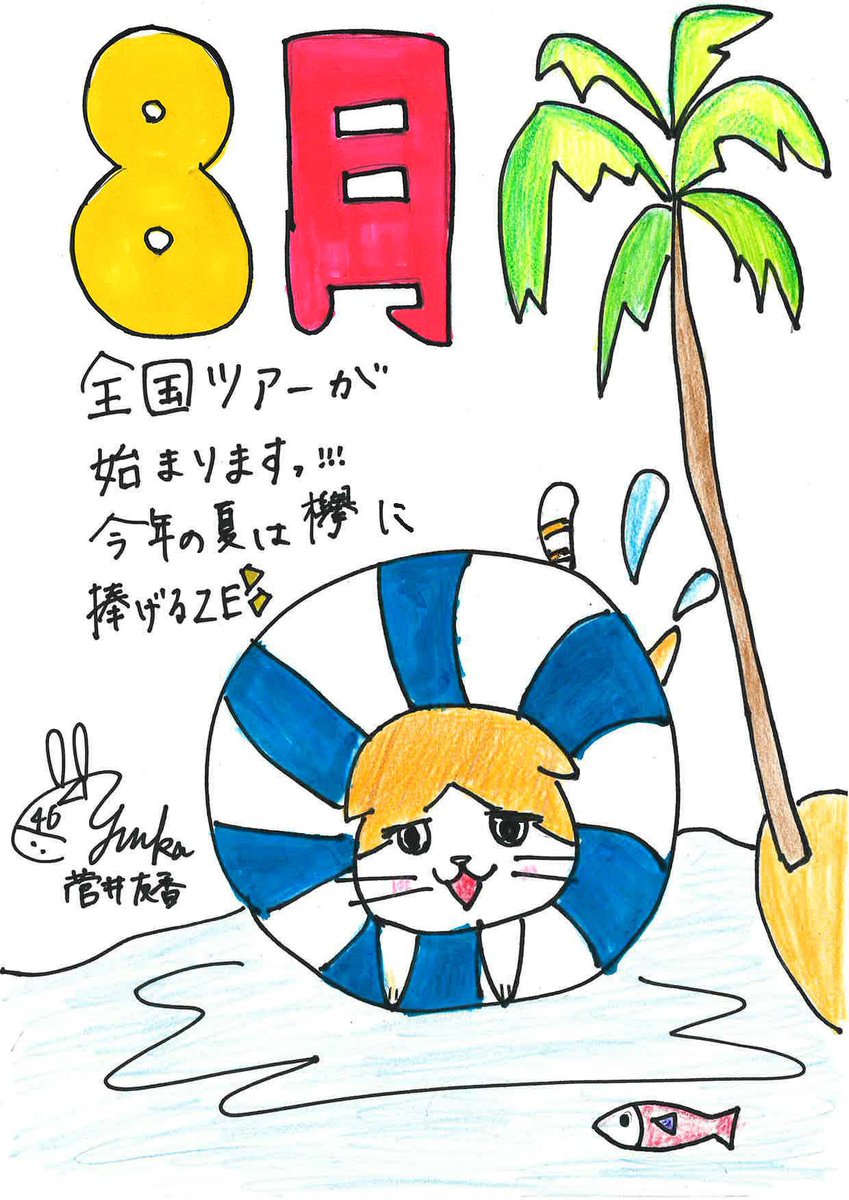 8月
全国ツアーが
始まりますっ!!!
今年の夏は欅に
捧げるZE
46
Yuuka
菅井友香